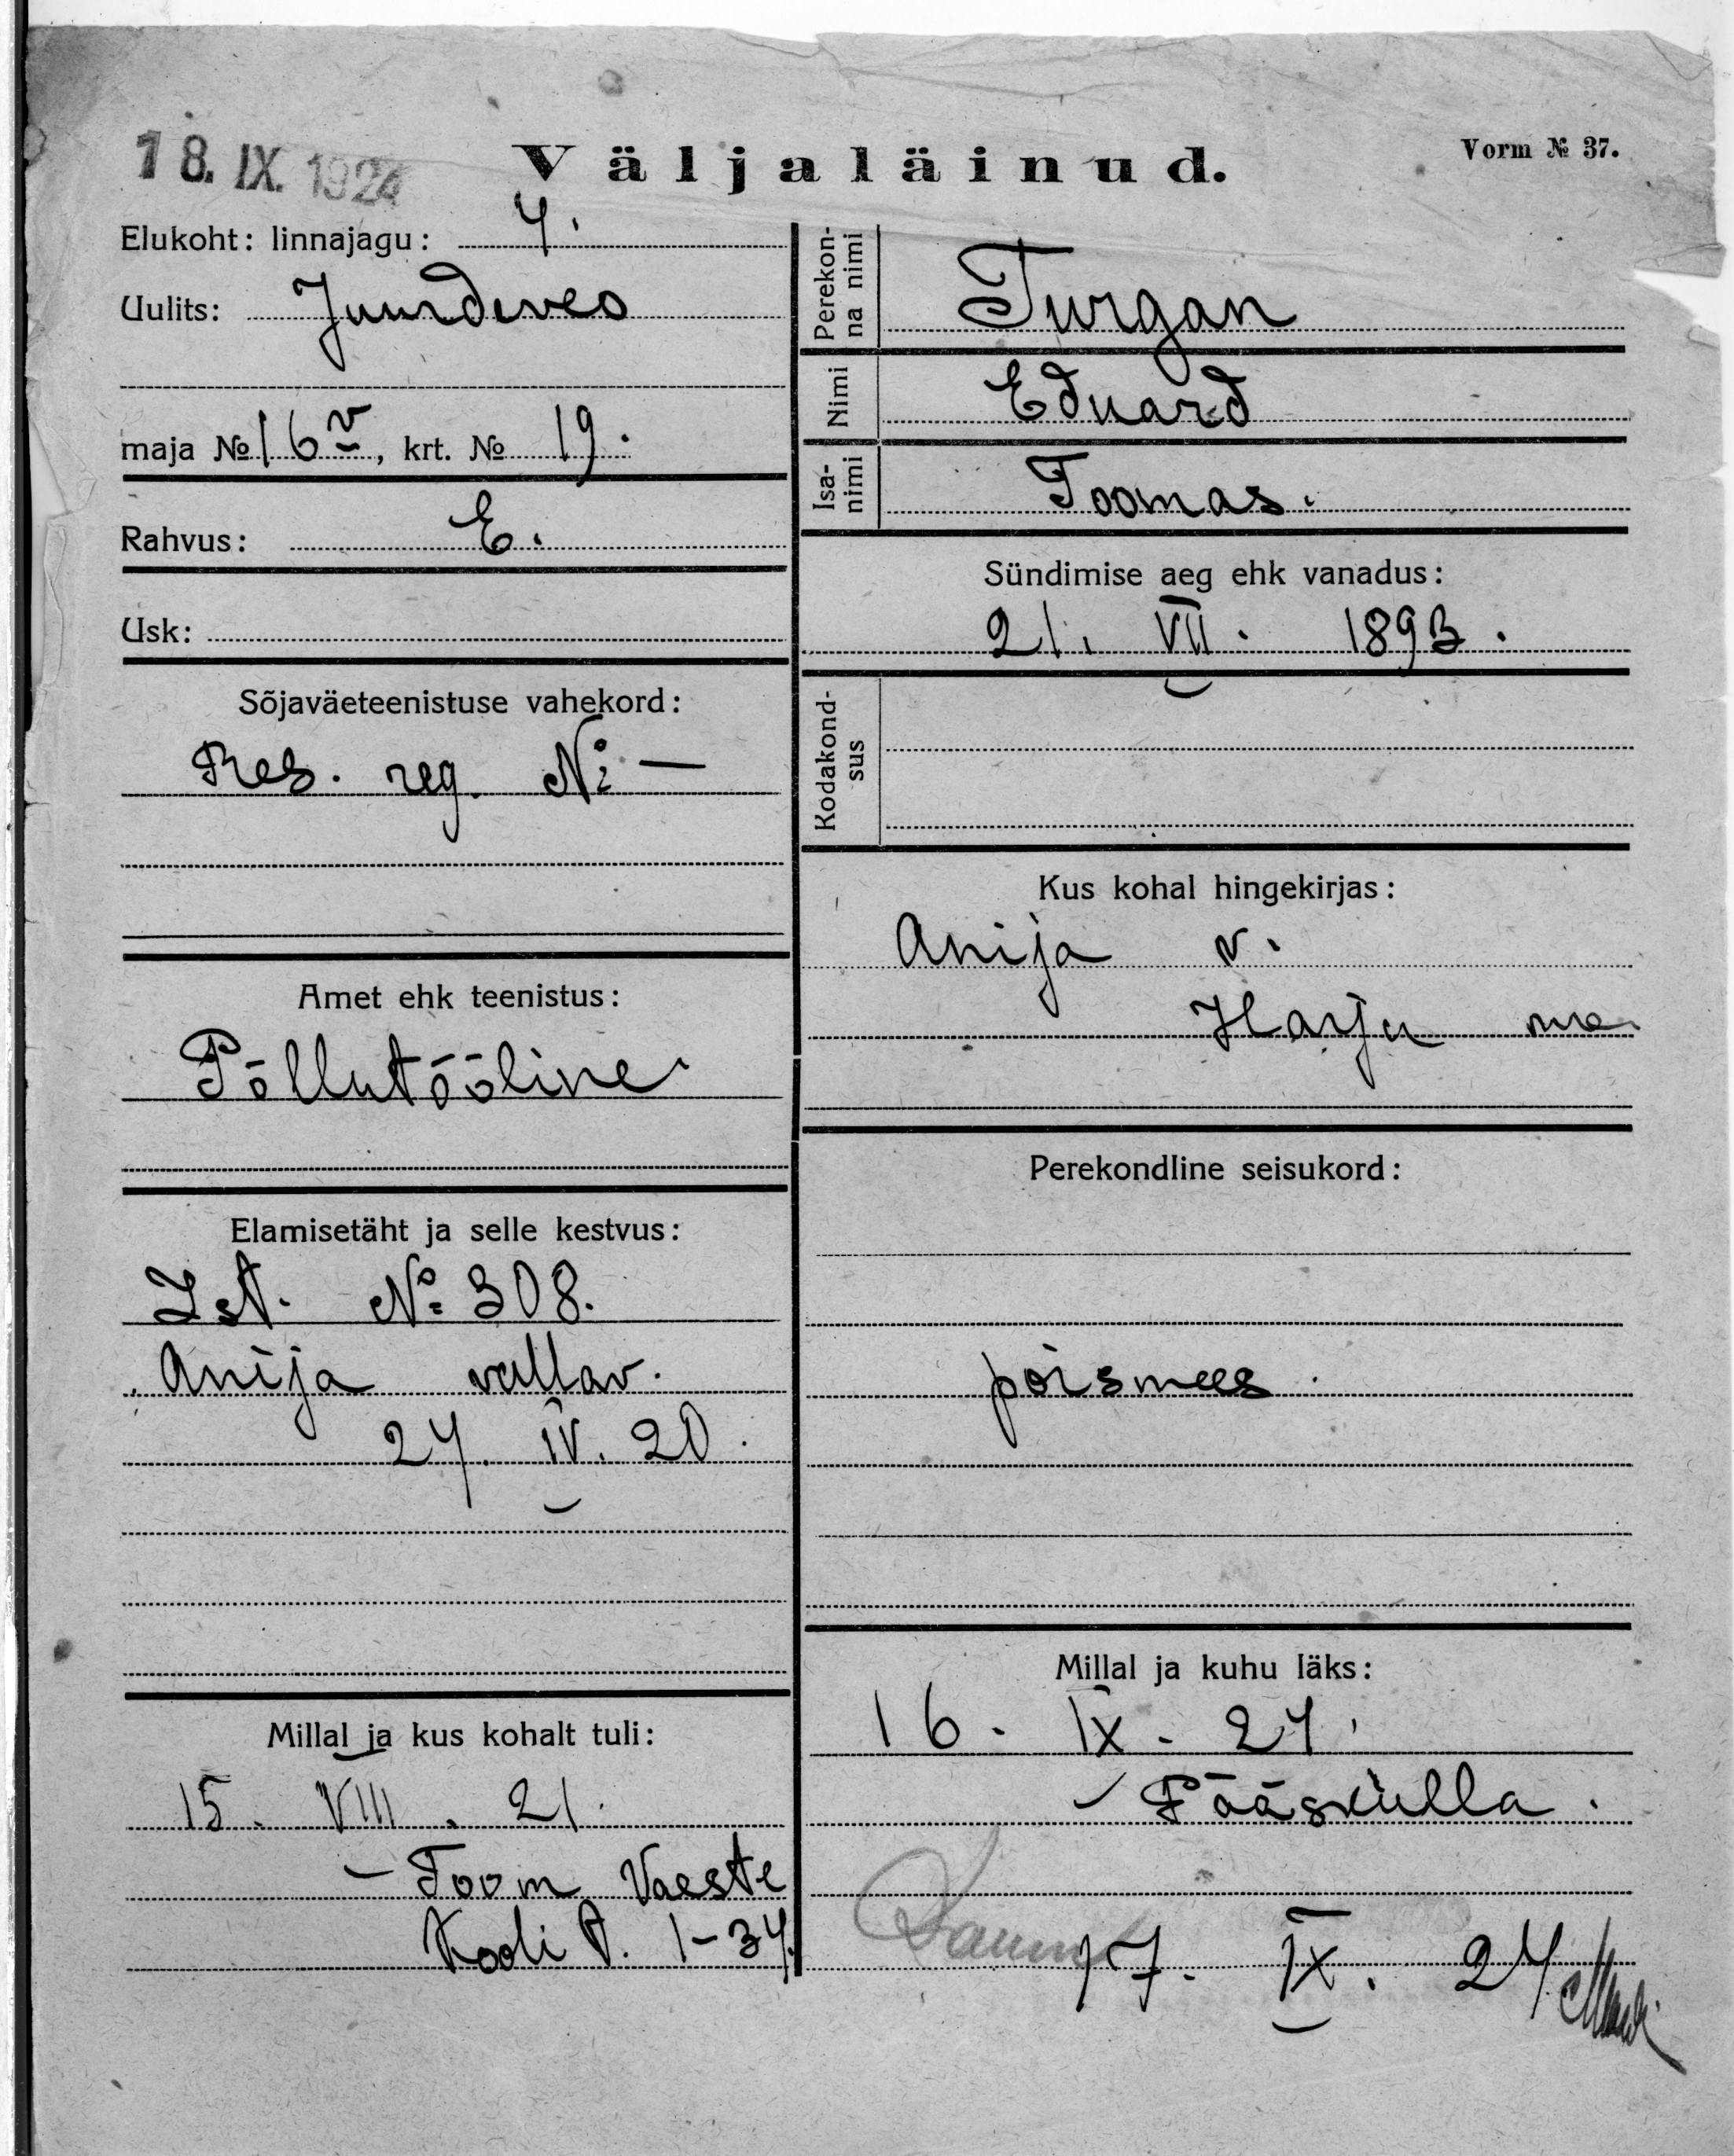 18. IX. 1924
Väljaläinud.
Vorm № 37.
Elukoht: linnajagu: 4.
Uulits: Juurdeveo
maja № 16 v, krt. № 19.
Rahvus: E.
Usk:
Sõjaväeteenistuse vahekord:
Res. reg. № —
Amet ehk teenistus:
Põllutööline.
Elamisetäht ja selle kestvus:
Ist. № 308.
Anija vallav.
24. IV. 20.
Millal ja kus kohalt tuli:
15. VIII. 21.
- Toom Vaeste
Kooli t. 1-34.
Perekonna nimi
Turgan
Nimi
Eduard
Isanimi
Toomas.
Sündimise aeg ehk vanadus:
21. VII. 1893.
Kodakondsus
Kus kohal hingekirjas:
Anija v.
Harju ma.
Perekondline seisukord:
poismees.
Millal ja kuhu läks:
16. IX. 24.
- Pääskülla.
17. IX. 24